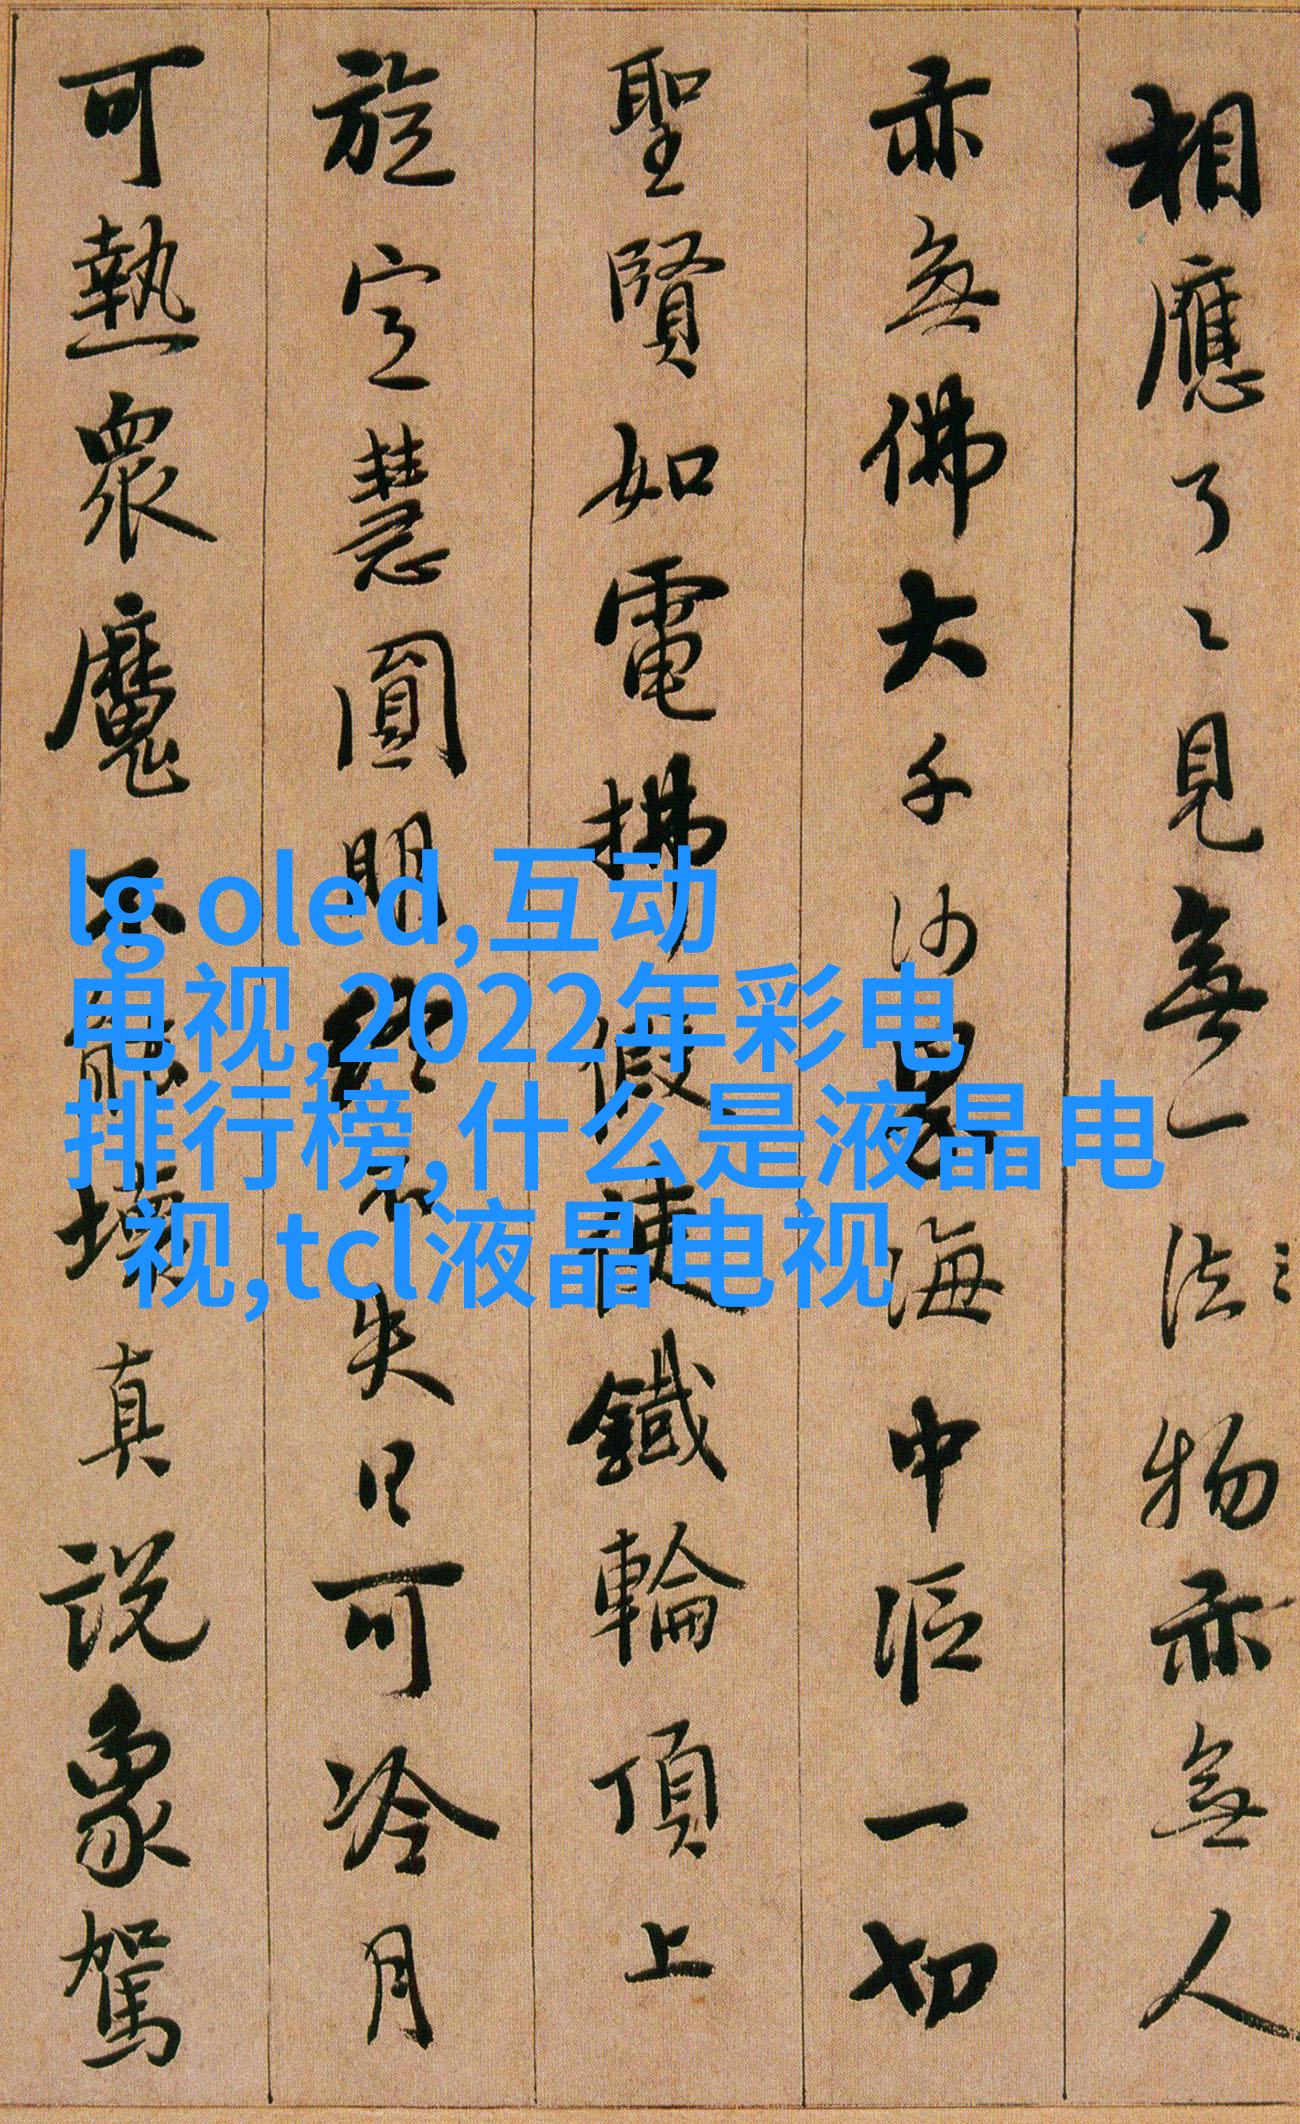 相應了〻見無一法物亦無人
亦無佛大千沙界海中漚一切
聖賢如電拂假使鐵輪頂上
旋定慧圓明終不失日可冷月
可熱眾魔不能壞真説象駕
lg oled,互动
电视,2022年彩电
排行榜,什么是液晶电
视,tcl液晶电视